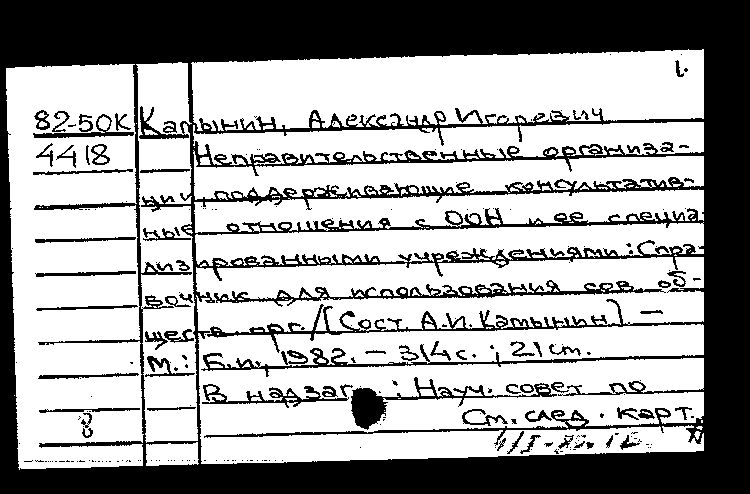 1.
82-50К Катынин, Александр Игоревич
4418 Неправительственные организа-
ции, поддерживающие консультатив-
ные отношения с ООН и ее специа
лизированными учреждениями: Спра-
вочник для использования сов. об-
ществ. орг. / [Сост. А.И. Катынин] —
М.: Б.и., 1982. — 314 с. ; 21 см.
В надзаг. : Науч. совет по
8 См. след. карт.